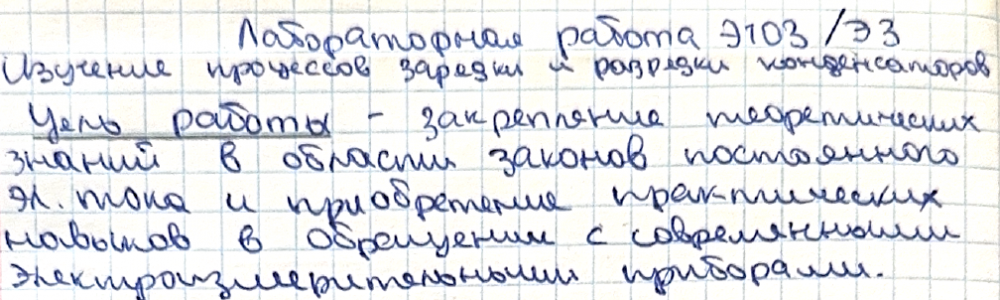 Лабораторная работа Э103/ЭЗ
Изучение процессов зарядки и разрядки конденсаторов
Цель работы - закрепление теоретических
знаний в области законов постоянного
эл. тока и приобретение практических
навыков в обращении с современными
электроизмерительными приборами.